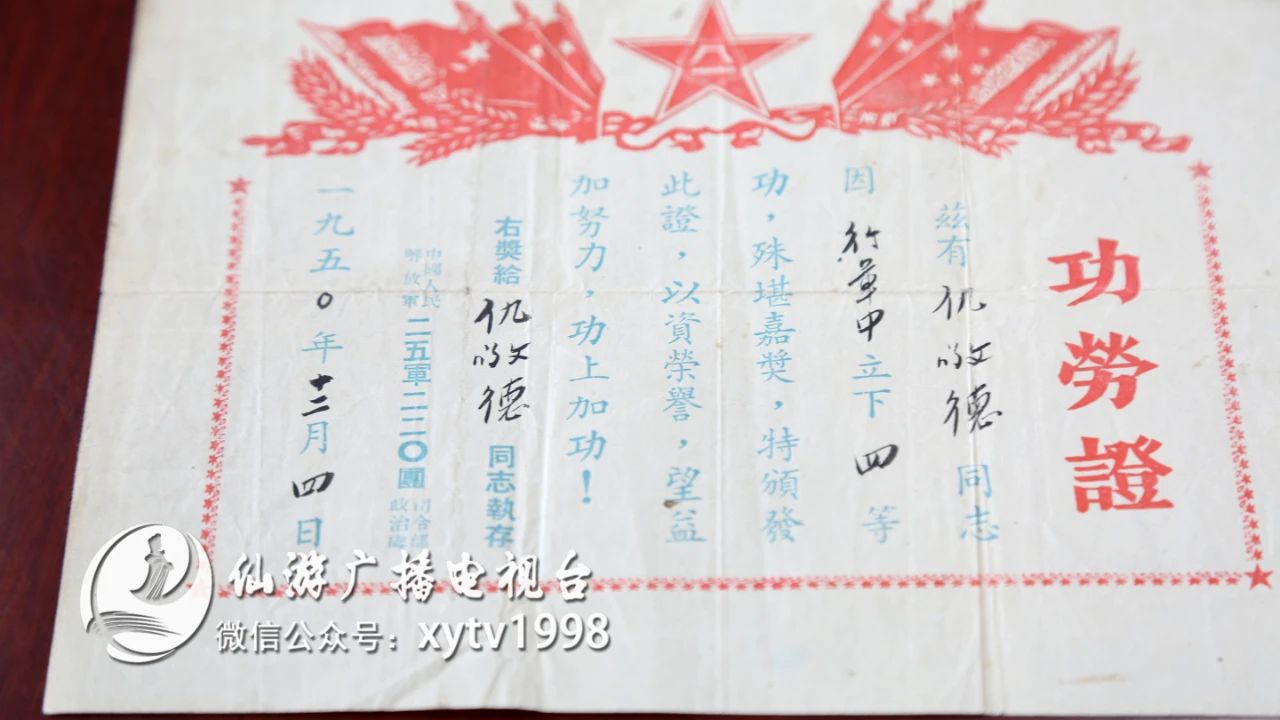 功勞證
茲有仇敬德同志
因行軍中立下四等
功，殊堪嘉獎，特頒發
此證，以資榮譽，望益
加努力，功上加功！
右獎給仇敬德同志執存
中國人民解放軍二五軍二二〇團司令部政治處
一九五〇年十二月四日
仙游广播电视台
微信公众号：xytv1998